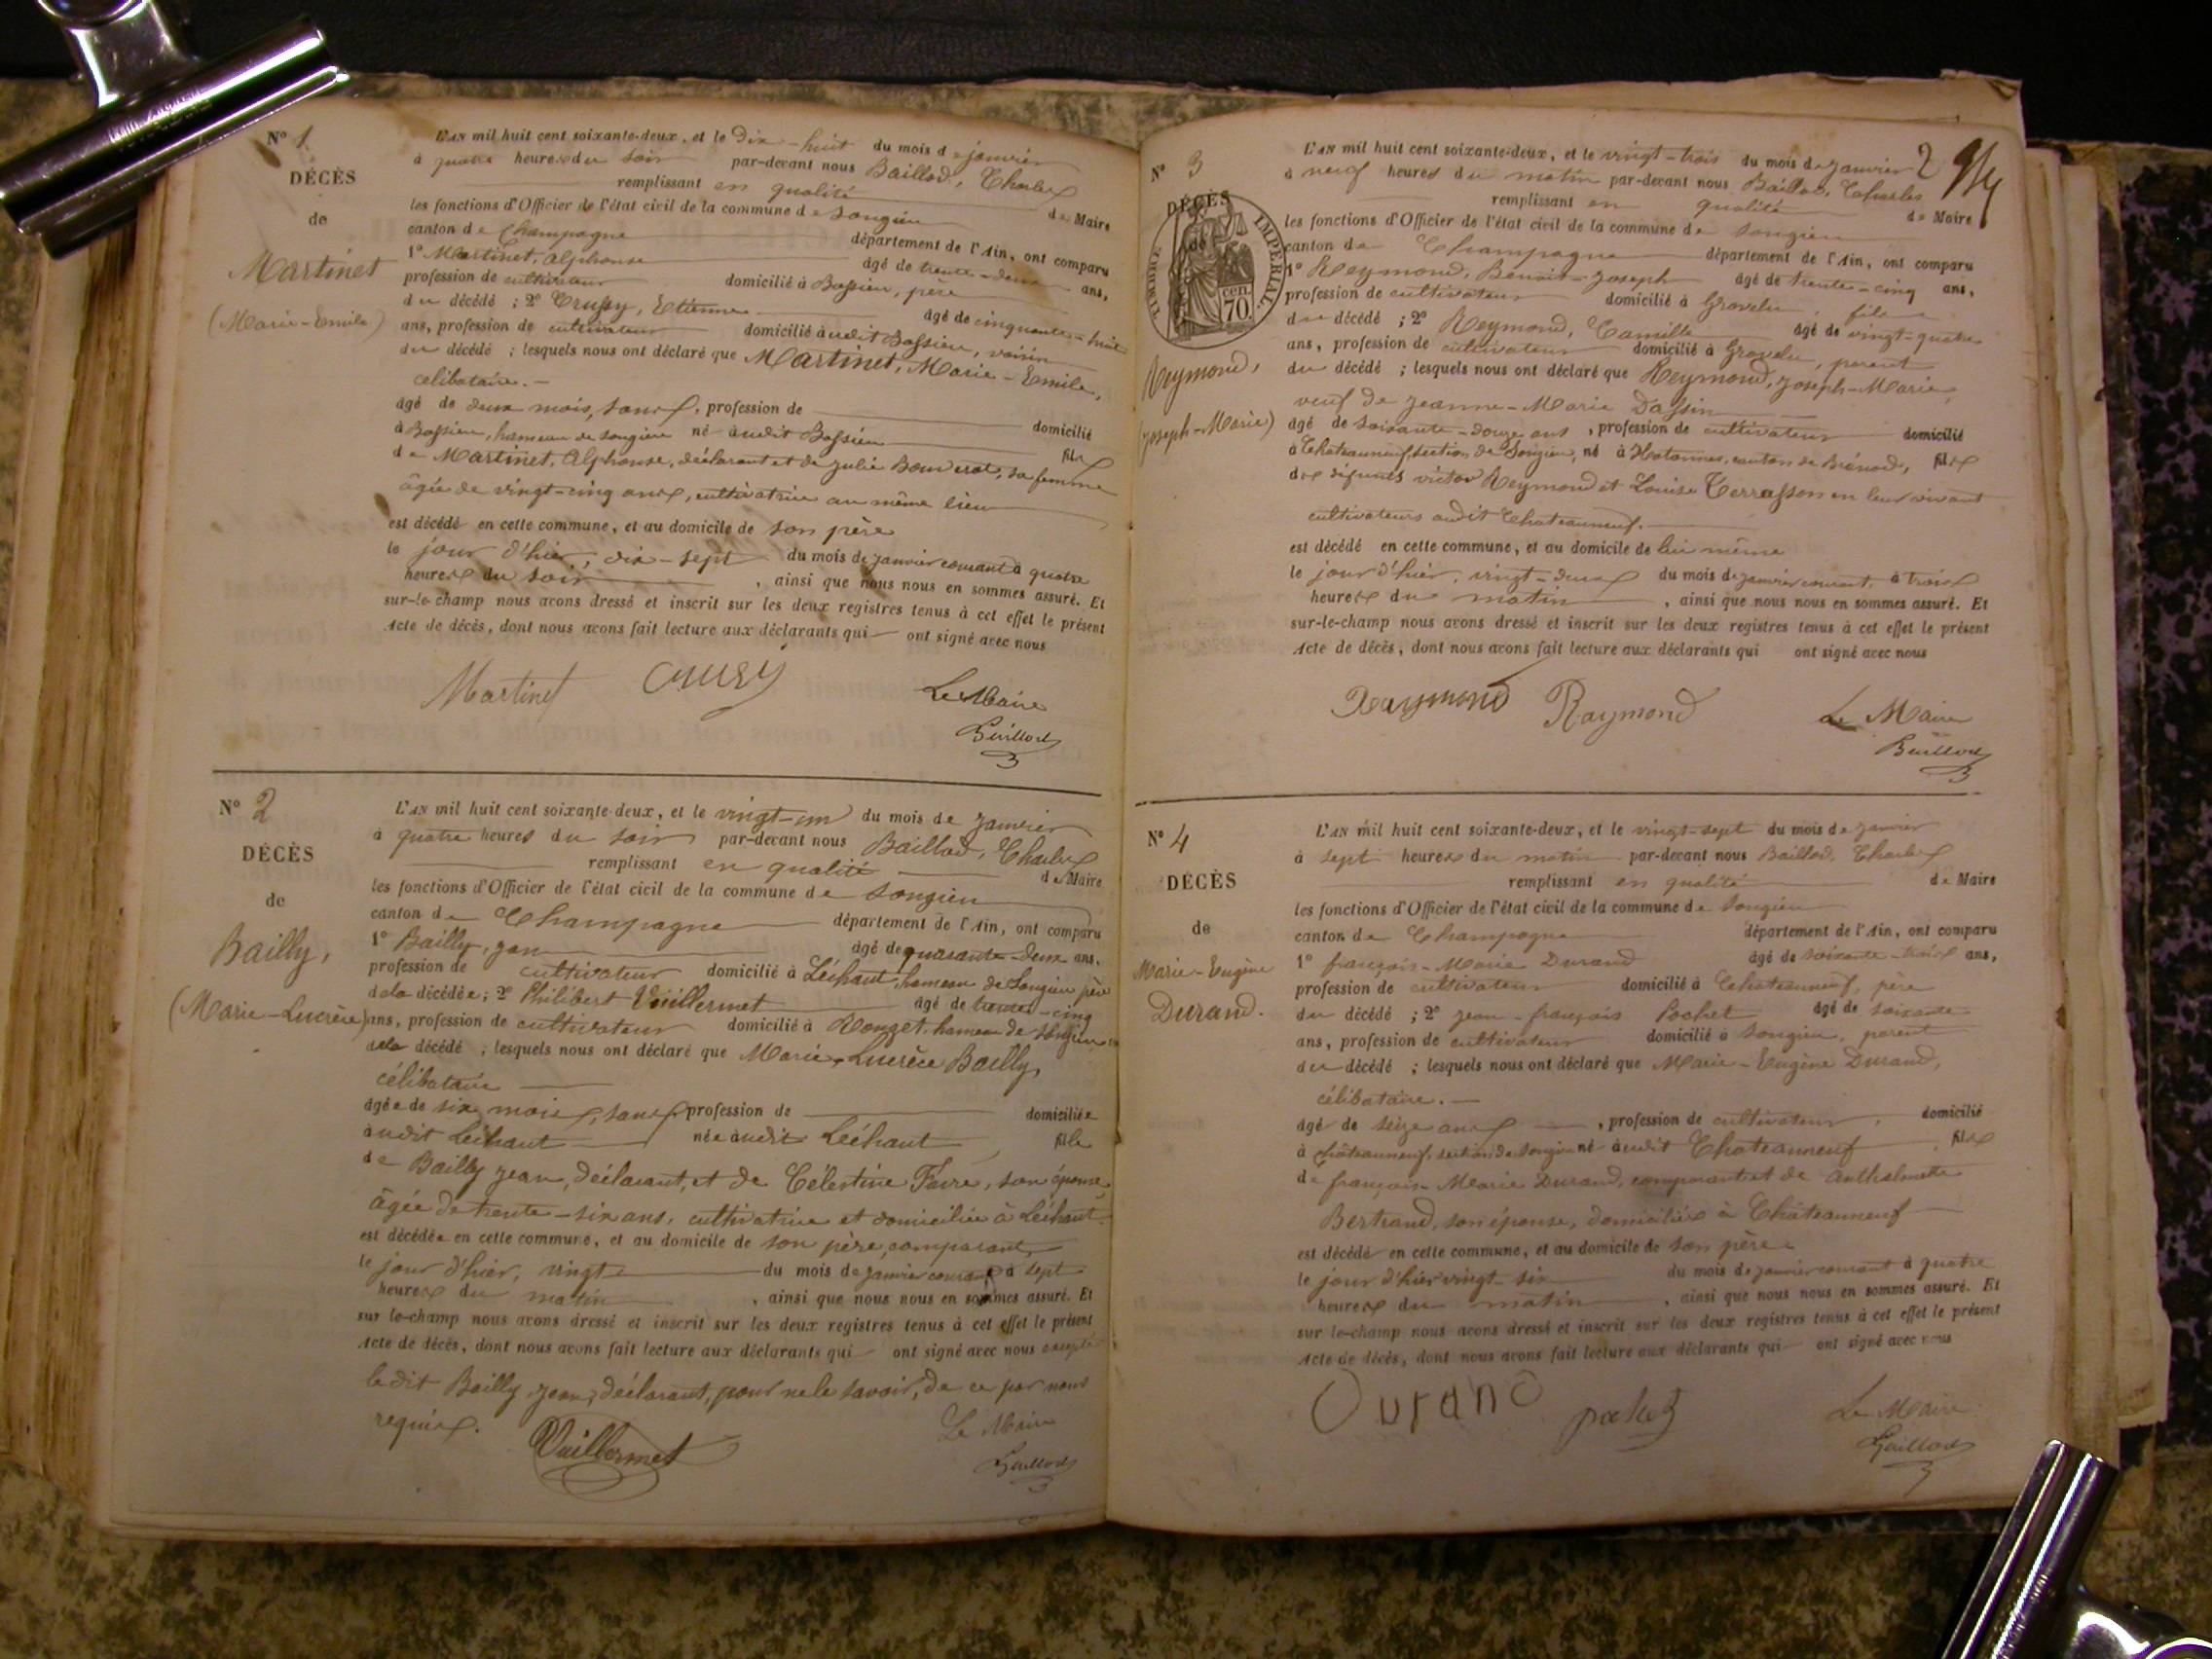 N° 1
DÉCÈS
de
Martinet
(Marie-Emile)
L'AN mil huit cent soixante-deux, et le Dix-huit du mois de janvier
à quatre heures du soir par-devant nous Baillod, Charles
remplissant en qualité de Maire
les fonctions d'Officier de l'état civil de la commune de Songieu
canton de Champagne département de l'Ain, ont comparu
1° Martinet, Alphonse âgé de trente-deux ans,
profession de cultivateur domicilié à Bassieu, père
du décédé ; 2° Crussy, Etienne âgé de cinquante-huit
ans, profession de cultivateur domicilié audit Bassieu, voisin
du décédé ; lesquels nous ont déclaré que Martinet, Marie-Emile,
célibataire.
âgé de deux mois, sans profession de domicilié
à Bassieu, hameau de Songieu né audit Bassieu fils
de Martinet, Alphonse, déclarant et de Julie sa femme
âgée de vingt-cinq ans, cultivatrice au même lieu
est décédé en cette commune, et au domicile de son père
le jour d'hier, dix-sept du mois de janvier courant à quatre
heures du soir, ainsi que nous nous en sommes assuré. Et
sur-le-champ nous avons dressé et inscrit sur les deux registres tenus à cet effet le présent
Acte de décès, dont nous avons fait lecture aux déclarants qui ont signé avec nous
Martinet Le Maire
Baillod
N° 2
DÉCÈS
de
Bailly,
(Marie-Lucrèce)
L'AN mil huit cent soixante-deux, et le vingt-un du mois de janvier
à quatre heures du soir par-devant nous Baillod, Charles
remplissant en qualité de Maire
les fonctions d'Officier de l'état civil de la commune de Songieu
canton de Champagne département de l'Ain, ont comparu
1° Bailly, Jean âgé de quarante-deux ans,
profession de cultivateur domicilié à Léchaut hameau de Songieu père
de la décédée ; 2° Philibert Vuillermet âgé de trente-cinq
ans, profession de cultivateur domicilié à Ronzet, hameau de Songieu
de la décédé ; lesquels nous ont déclaré que Marie-Lucrèce Bailly,
célibataire
âgée de six mois, sans profession de domiciliée
audit Léchaut née audit Léchaut fille
de Bailly Jean, déclarant, et de Célestine Favre, son épouse,
âgée de trente-six ans, cultivatrice et domiciliée à Léchaut
est décédée en cette commune, et au domicile de son père, comparant
le jour d'hier, vingt du mois de janvier courant à sept
heures du matin, ainsi que nous nous en sommes assuré. Et
sur le-champ nous avons dressé et inscrit sur les deux registres tenus à cet effet le présent
Acte de décès, dont nous avons fait lecture aux déclarants qui ont signé avec nous excepté
ledit Bailly Jean, déclarant, pour ne le savoir, de ce par nous
requis.
Vuillermet Le Maire
Baillod
2
N° 3
DÉCÈS
de
TIMBRE IMPÉRIAL
70 cen.
Reymond,
(Joseph-Marie)
L'AN mil huit cent soixante-deux, et le vingt-trois du mois de janvier
à neuf heures du matin par-devant nous Baillod, Charles
remplissant en qualité de Maire
les fonctions d'Officier de l'état civil de la commune de Songieu
canton de Champagne département de l'Ain, ont comparu
1° Reymond, Benoit-Joseph âgé de trente-cinq ans,
profession de cultivateur domicilié à Gravelu, fils
du décédé ; 2° Reymond, Camille âgé de vingt-quatre
ans, profession de cultivateur domicilié à Gravelu, parent
du décédé ; lesquels nous ont déclaré que Reymond, Joseph-Marie,
veuf de Jeanne-Marie Dassin
âgé de soixante-douze ans, profession de cultivateur domicilié
à Chateauneuf, section de Songieu, né à Hotonnes, canton de Brénod, fils
des défunts Victor Reymond et Louise Terrasson en leur vivant
cultivateurs audit Chateauneuf.
est décédé en cette commune, et au domicile de lui même
le jour d'hier, vingt-deux du mois de janvier courant, à trois
heures du matin, ainsi que nous nous en sommes assuré. Et
sur-le-champ nous avons dressé et inscrit sur les deux registres tenus à cet effet le présent
Acte de décès, dont nous avons fait lecture aux déclarants qui ont signé avec nous
Raymond Raymond Le Maire
Baillod
N° 4
DÉCÈS
de
Marie-Eugène
Durand.
L'AN mil huit cent soixante-deux, et le vingt-sept du mois de janvier
à sept heures du matin par-devant nous Baillod, Charles
remplissant en qualité de Maire
les fonctions d'Officier de l'état civil de la commune de Songieu
canton de Champagne département de l'Ain, ont comparu
1° françois-Marie Durand âgé de soixante-trois ans,
profession de cultivateur domicilié à Chateauneuf, père
du décédé ; 2° Jean-françois Pochet âgé de soixante
ans, profession de cultivateur domicilié à Songieu, parent
du décédé ; lesquels nous ont déclaré que Marie-Eugène Durand,
célibataire.
âgé de seize ans, profession de cultivateur, domicilié
à Châteauneuf, section de Songieu né audit Chateauneuf, fils
de françois-Marie Durand, comparant et de Anthelmette
Bertrand, son épouse, domiciliés à Châteauneuf
est décédé en cette commune, et au domicile de son père
le jour d'hier vingt-six du mois de janvier courant à quatre
heures du matin, ainsi que nous nous en sommes assuré. Et
sur le-champ nous avons dressé et inscrit sur les deux registres tenus à cet effet le présent
Acte de décès, dont nous avons fait lecture aux déclarants qui ont signé avec nous
Durand pochet Le Maire
Baillod